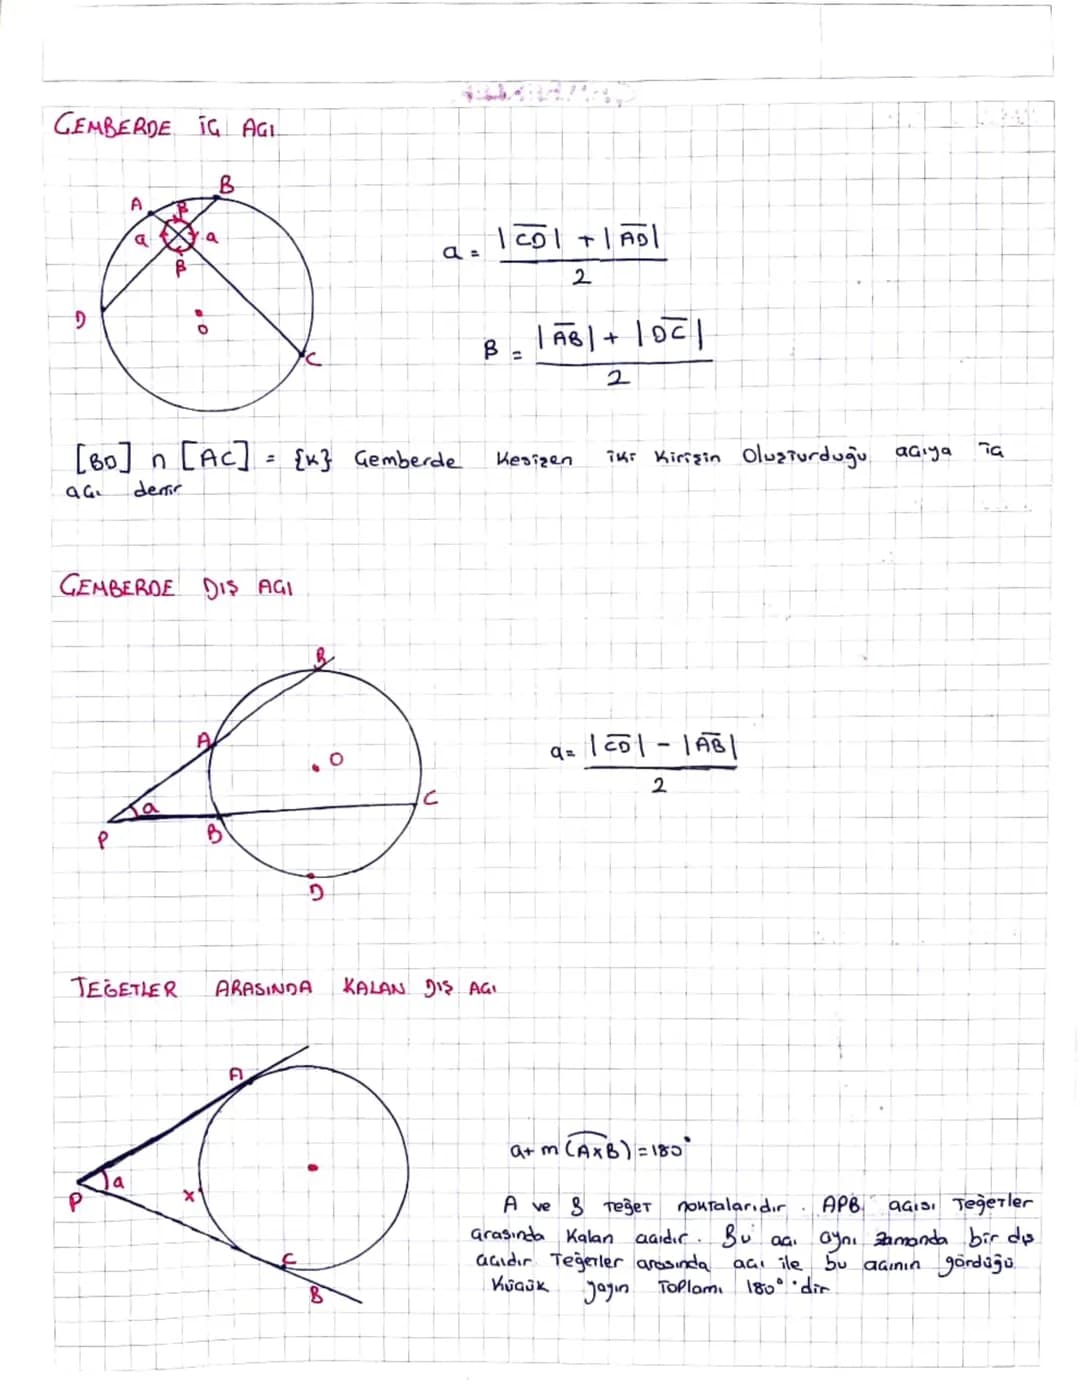 ÇEMBERDE İÇ AÇI
B
A
β
a
a
β
D
O
C
a = |CD| + |AD|
2
β = |AB| + |DC|
2
[BD] ∩ [AC] = {K} Çemberde Kesişen iki Kirişin Oluşturduğu açıya iç
açı denir
ÇEMBERDE DIŞ AÇI
B
A
O
a
C
P
B
D
a = |CD| - |AB|
2
TEĞETLER ARASINDA KALAN DIŞ AÇI
A
a
P
x
C
B
a + m(AxB) = 180°
A ve B teğet noktalarıdır. APB açısı Teğetler
arasında Kalan açıdır. Bu açı aynı zamanda bir dış
açıdır Teğetler arasında açı ile bu açının gördüğü
Küçük yayın Toplamı 180°'dir